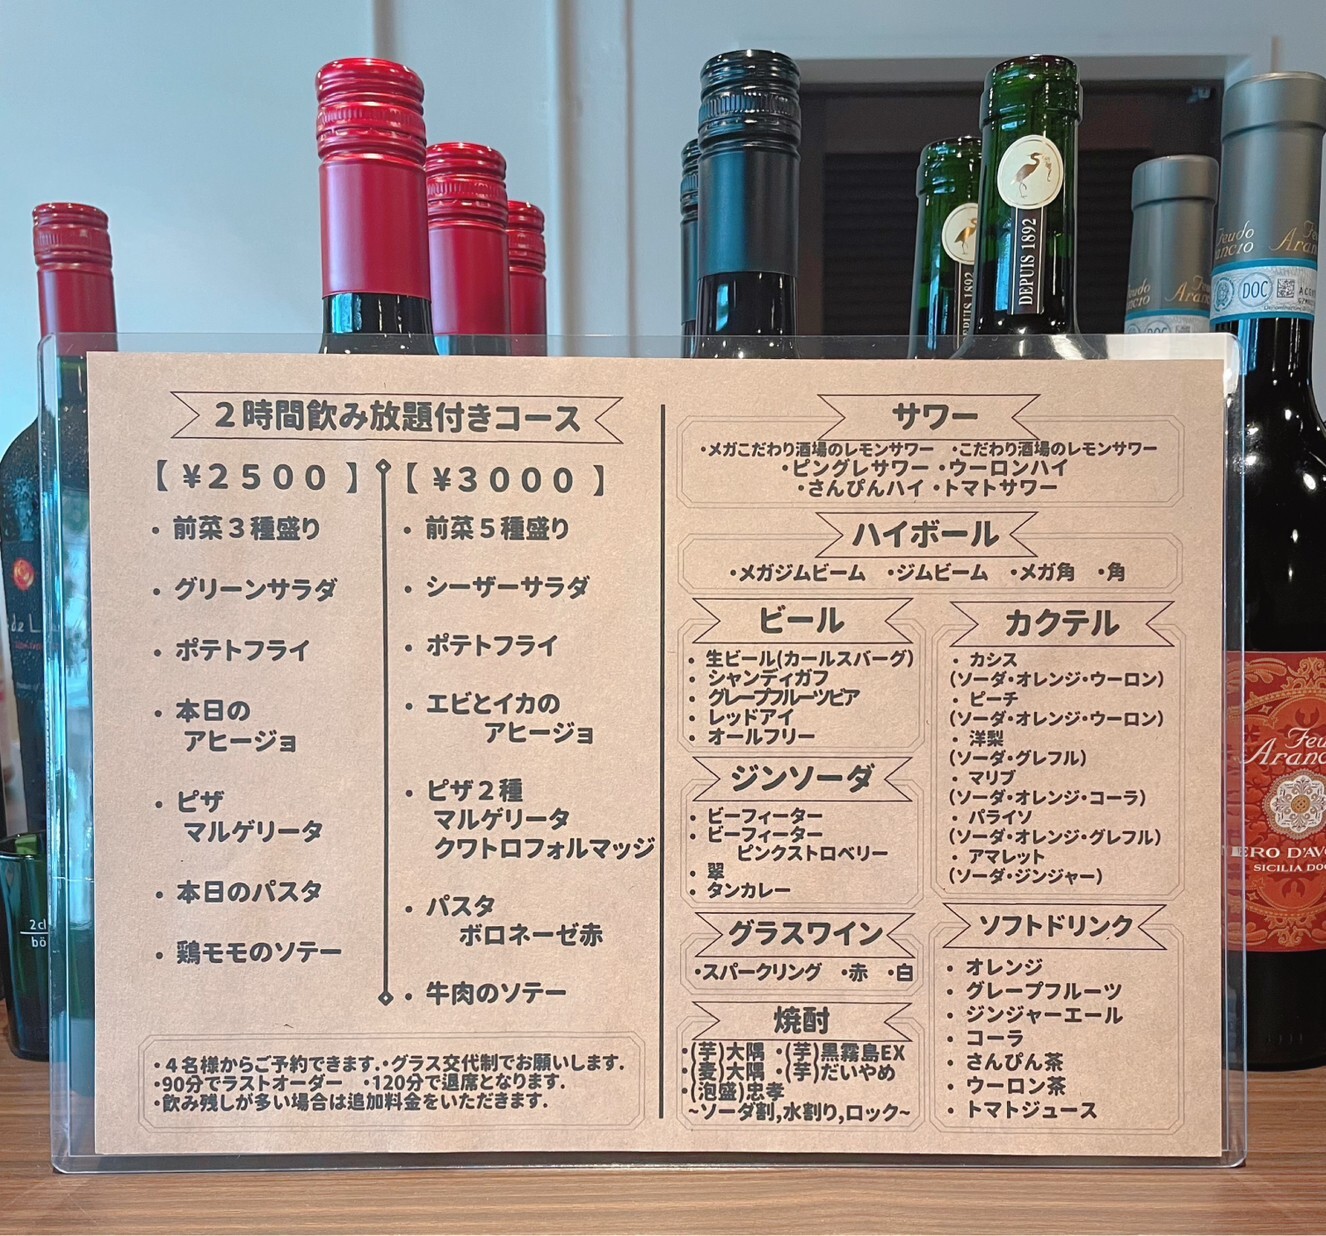 2時間飲み放題付きコース
【 ¥2500 】
・ 前菜3種盛り
・ グリーンサラダ
・ ポテトフライ
・ 本日の
アヒージョ
・ ピザ
マルゲリータ
・ 本日のパスタ
・ 鶏モモのソテー
【 ¥3000 】
・ 前菜5種盛り
・ シーザーサラダ
・ ポテトフライ
・ エビとイカの
アヒージョ
・ ピザ2種
マルゲリータ
クワトロフォルマッジ
・ パスタ
ボロネーゼ赤
・ 牛肉のソテー
・4名様からご予約できます。・グラス交代制でお願いします。
・90分でラストオーダー ・120分で退席となります。
・飲み残しが多い場合は追加料金をいただきます。
サワー
・メガこだわり酒場のレモンサワー ・こだわり酒場のレモンサワー
・ピングレサワー ・ウーロンハイ
・さんぴんハイ ・トマトサワー
ハイボール
・メガジムビーム ・ジムビーム ・メガ角 ・角
ビール
・ 生ビール(カールスバーグ)
・ シャンディガフ
・ グレープフルーツビア
・ レッドアイ
・ オールフリー
ジンソーダ
・ ビーフィーター
・ ビーフィーター
ピンクストロベリー
・ 翠
・ タンカレー
グラスワイン
・スパークリング ・赤 ・白
焼酎
・(芋)大隅 ・(芋)黒霧島EX
・(麦)大隅 ・(芋)だいやめ
・(泡盛)忠孝
~ソーダ割,水割り,ロック~
カクテル
・ カシス
(ソーダ・オレンジ・ウーロン)
・ ピーチ
(ソーダ・オレンジ・ウーロン)
・ 洋梨
(ソーダ・グレフル)
・ マリブ
(ソーダ・オレンジ・コーラ)
・ パライソ
(ソーダ・オレンジ・グレフル)
・ アマレット
(ソーダ・ジンジャー)
ソフトドリンク
・ オレンジ
・ グレープフルーツ
・ ジンジャーエール
・ コーラ
・ さんぴん茶
・ ウーロン茶
・ トマトジュース
DEPUIS 1892
Feudo
Arancio
DOC
SICILIA DOC
2cl